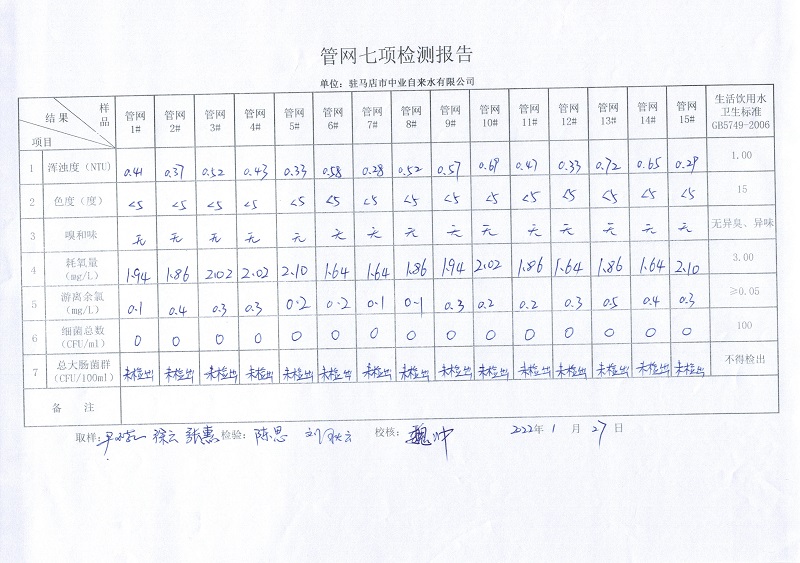 管网七项检测报告
单位：驻马店市中业自来水有限公司
结果 样品 项目 管网1# 管网2# 管网3# 管网4# 管网5# 管网6# 管网7# 管网8# 管网9# 管网10# 管网11# 管网12# 管网13# 管网14# 管网15# 生活饮用水卫生标准GB5749-2006
1 浑浊度（NTU） 0.41 0.37 0.52 0.43 0.33 0.58 0.28 0.52 0.57 0.69 0.47 0.33 0.72 0.65 0.29 1.00
2 色度（度） <5 <5 <5 <5 <5 <5 <5 <5 <5 <5 <5 <5 <5 <5 <5 15
3 嗅和味 无 无 无 无 无 无 无 无 无 无 无 无 无 无 无 无异臭、异味
4 耗氧量（mg/L） 1.94 1.86 2.02 2.02 2.10 1.64 1.64 1.86 1.94 2.02 1.86 1.64 1.86 1.64 2.10 3.00
5 游离余氯（mg/L） 0.1 0.4 0.3 0.3 0.2 0.2 0.1 0.1 0.3 0.2 0.2 0.3 0.5 0.4 0.3 ≥0.05
6 细菌总数（CFU/ml） 0 0 0 0 0 0 0 0 0 0 0 0 0 0 0 100
7 总大肠菌群（CFU/100ml） 未检出 未检出 未检出 未检出 未检出 未检出 未检出 未检出 未检出 未检出 未检出 未检出 未检出 未检出 未检出 不得检出
备 注
取样： 徐云 张惠 检验：陈思 校核：魏帅 2022年1月27日